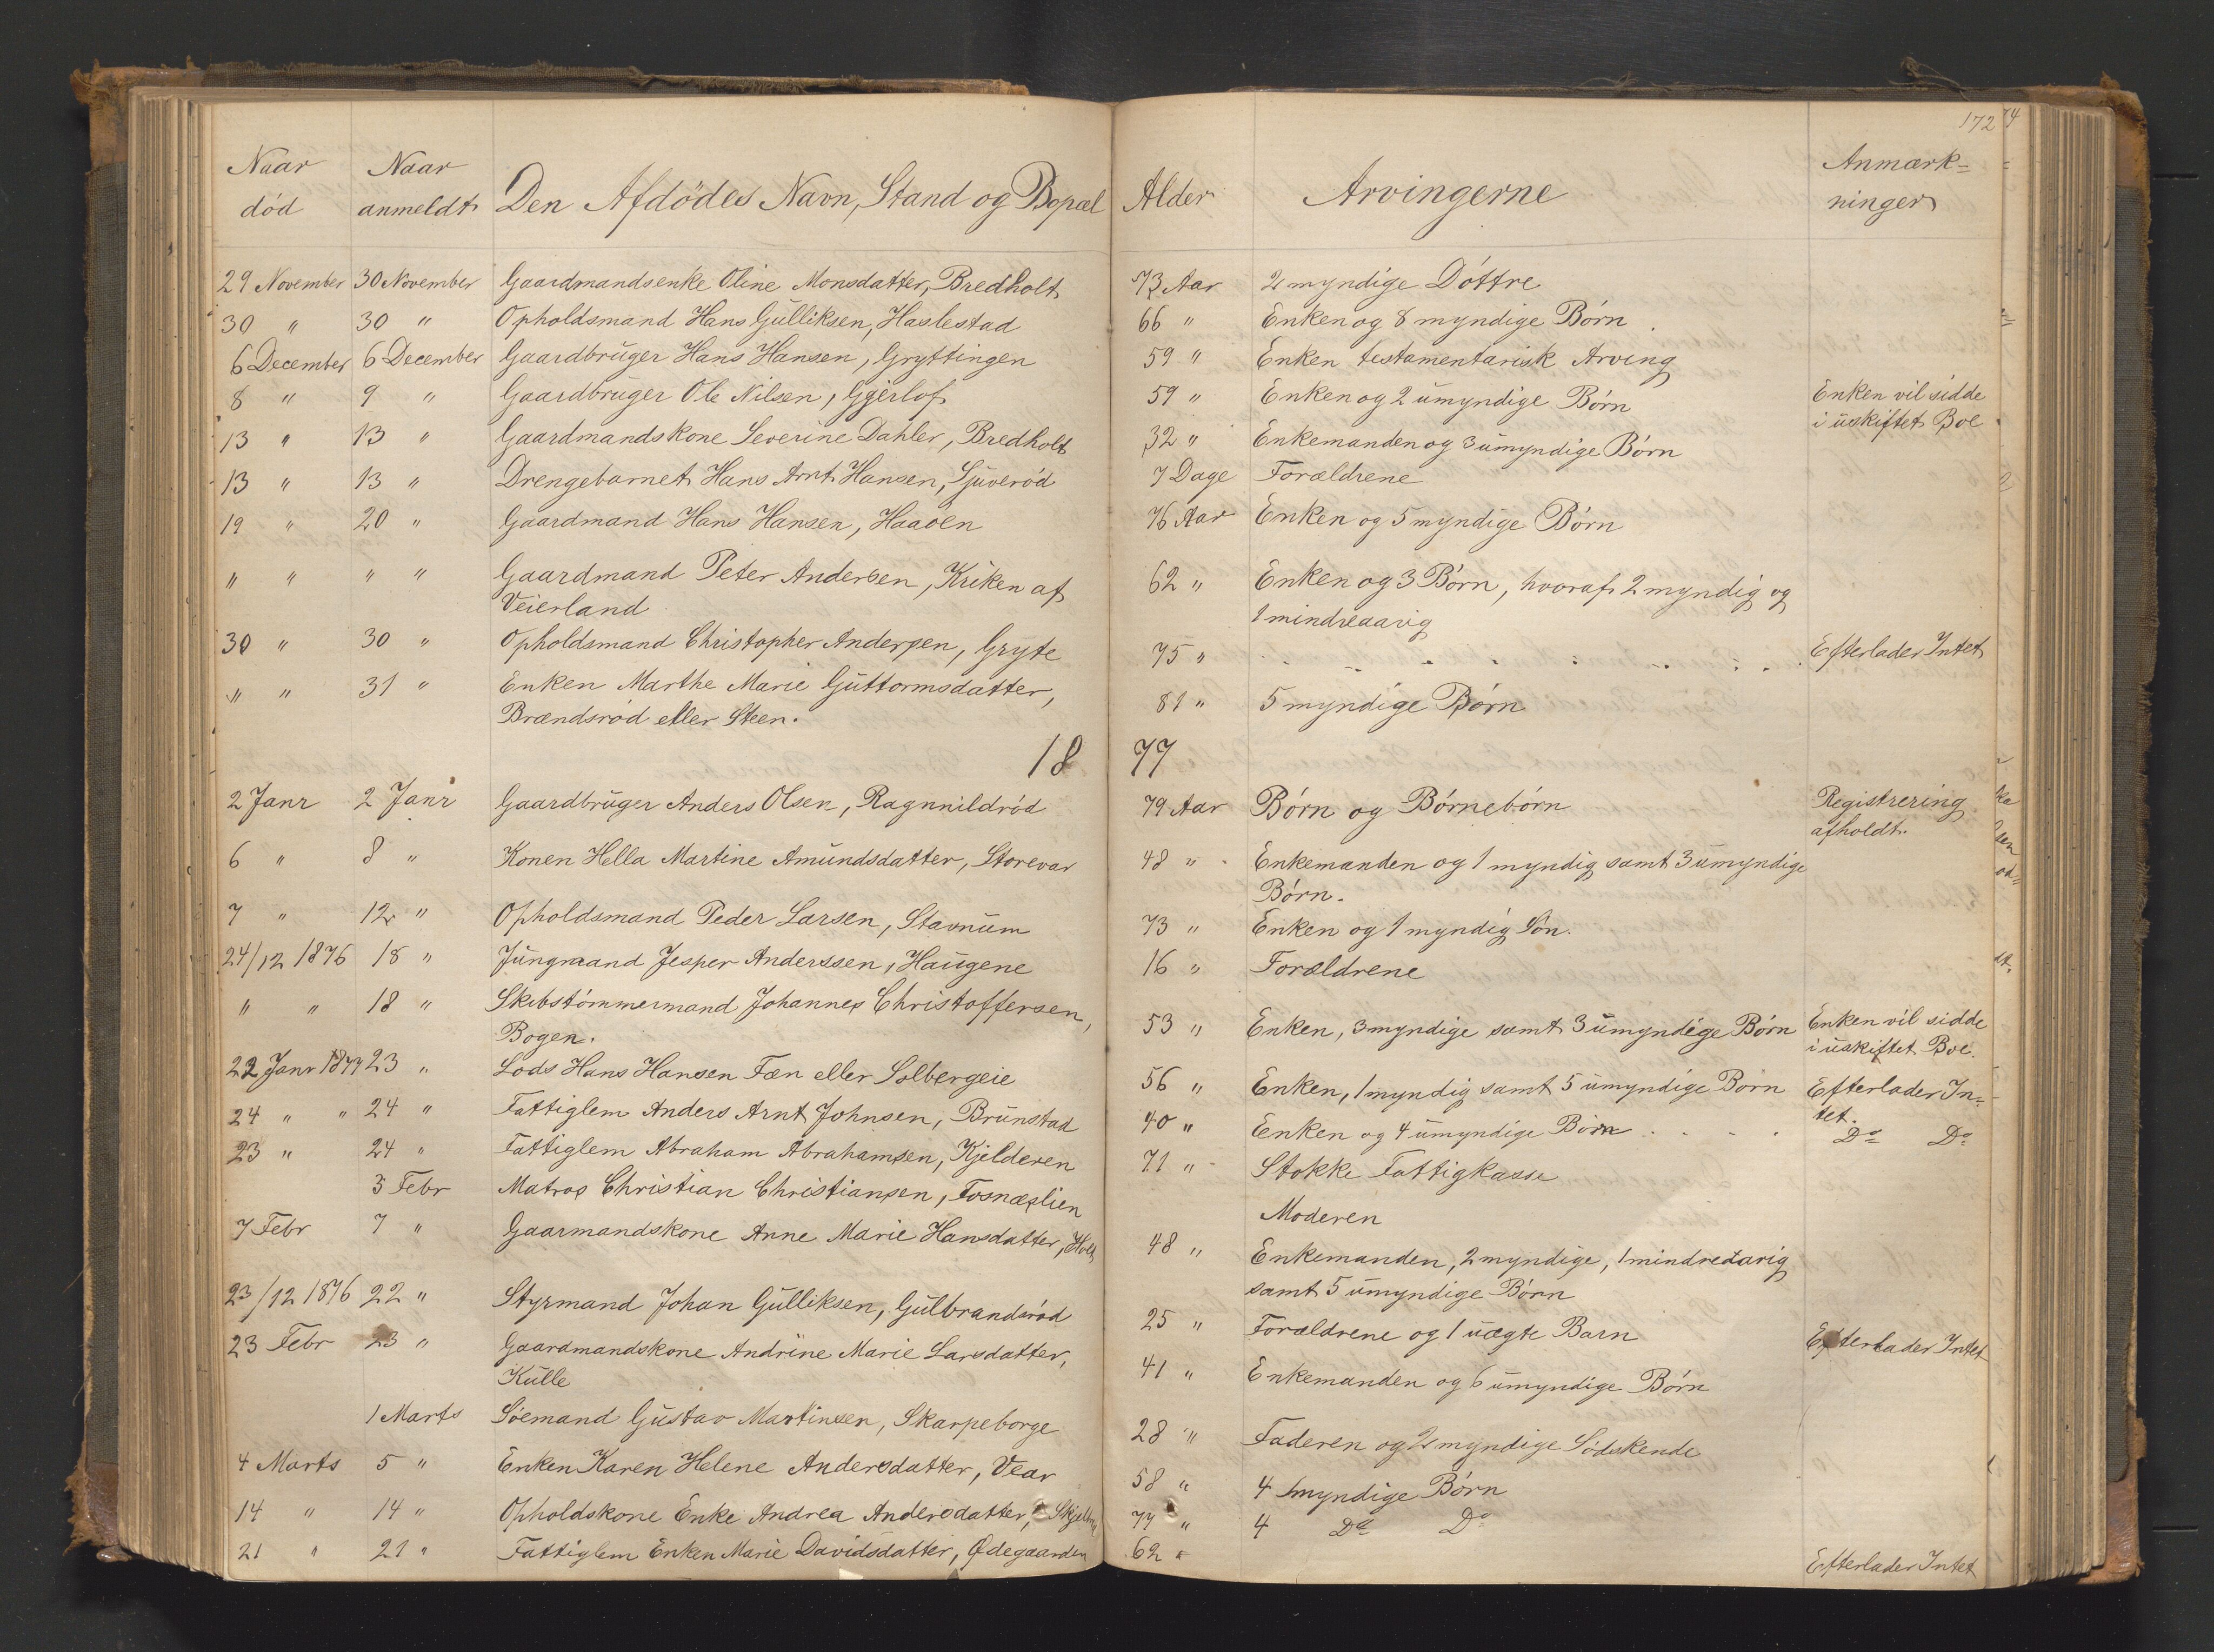 172
Naar død Naar anmeldt Den Afdödes Navn, Stand og Bopæl Alder Arvingerne Anmærk=
ninger
29 November 30 November Gaardmandsenke Oline Monsdatter, Bredholt 73 Aar 2 myndige Döttre
30 " 30 " Opholdsmand Hans Gulliksen, Haslestad 66 " Enken og 8 myndige Börn
6 December 6 December Gaardbruger Hans Hansen, Gryttingen 59 " Enken testamentarisk Arving
8 " 9 " Gaardbruger Ole Nilsen, Gjerlof 59 " Enken og 2 umyndige Börn Enken vil sidde
i uskiftet Boe
13 " 13 " Gaardmandskone Severine Dahler, Bredholt 32 " Enkemanden og 3 umyndige Börn
13 " 13 " Drengebarnet Hans Arnt Hansen, Sjuveröd 7 Dage Forældrene
19 " 20 " Gaardmand Hans Hansen, Haaöen 76 Aar Enken og 5 myndige Börn
" " " " Gaardmand Peter Andersen, Kriken af 62 " Enken og 3 Börn, hvoraf 2 myndig og
Veierland 1 mindreaarig
30 " 30 " Opholdsmand Christopher Andersen, Gryte 75 " Efterlader Intet
" " 31 " Enken Marthe Marie Guttormsdatter, 81 " 5 myndige Börn
Brændsröd eller Steen.
18 77
2 Janr 2 Janr Gaardbruger Anders Olsen, Ragnnildröd 79 Aar Börn og Börnebörn Registrering
afholdt.
6 " 8 " Konen Hella Martine Amundsdatter, Storevar 48 " Enkemanden og 1 myndig samt 3 umyndige
Börn.
7 " 12 " Opholdsmand Peder Larsen, Stavnum 73 " Enken og 1 myndig Sön.
24/12 1876 18 " Jungmand Jesper Anderssen, Haugene 16 " Forældrene
" " 18 " Skibstömmermand Johannes Christoffersen, 53 " Enken, 3 myndige samt 3 umyndige Börn Enken vil sidde
Bogen. i uskiftet Boe.
22 Janr 1877 23 " Lods Hans Hansen Fæn eller Solbergeie 56 " Enken, 1 myndig samt 5 umyndige Börn Efterlader In=
tet.
24 " " 24 " Fattiglem Anders Arnt Johnsen, Brunstad 40 " Enken og 4 umyndige Börn Do Do
23 " 24 " Fattiglem Abraham Abrahamsen, Kjelderen 71 " Stokke Fattigkasse
3 Febr Matros Christian Christiansen, Fosnæslien Moderen
7 Febr 7 " Gaarmandskone Anne Marie Hansdatter, Holt 48 " Enkemanden, 2 myndige, 1 mindreaarig
samt 5 umyndige Börn
23/12 1876 22 " Styrmand Johan Gulliksen, Gulbrandsröd 25 " Forældrene og 1 uægte Barn Efterlader Intet
23 Febr 23 " Gaardmandskone Andrine Marie Larsdatter, 41 " Enkemanden og 6 umyndige Börn
Kulle
1 Marts Söemand Gustav Martinsen, Skarpeborge 28 " Faderen og 2 myndige Södskende
4 Marts 5 " Enken Karen Helene Andersdatter, Vear 58 " 4 myndige Börn
14 " 14 " Opholdskone Enke Andrea Andersdatter, 77 " 4 Do Do
21 " 21 " Fattiglem Enken Marie Davidsdatter, Ødegaarden 62 " Efterlader Intet